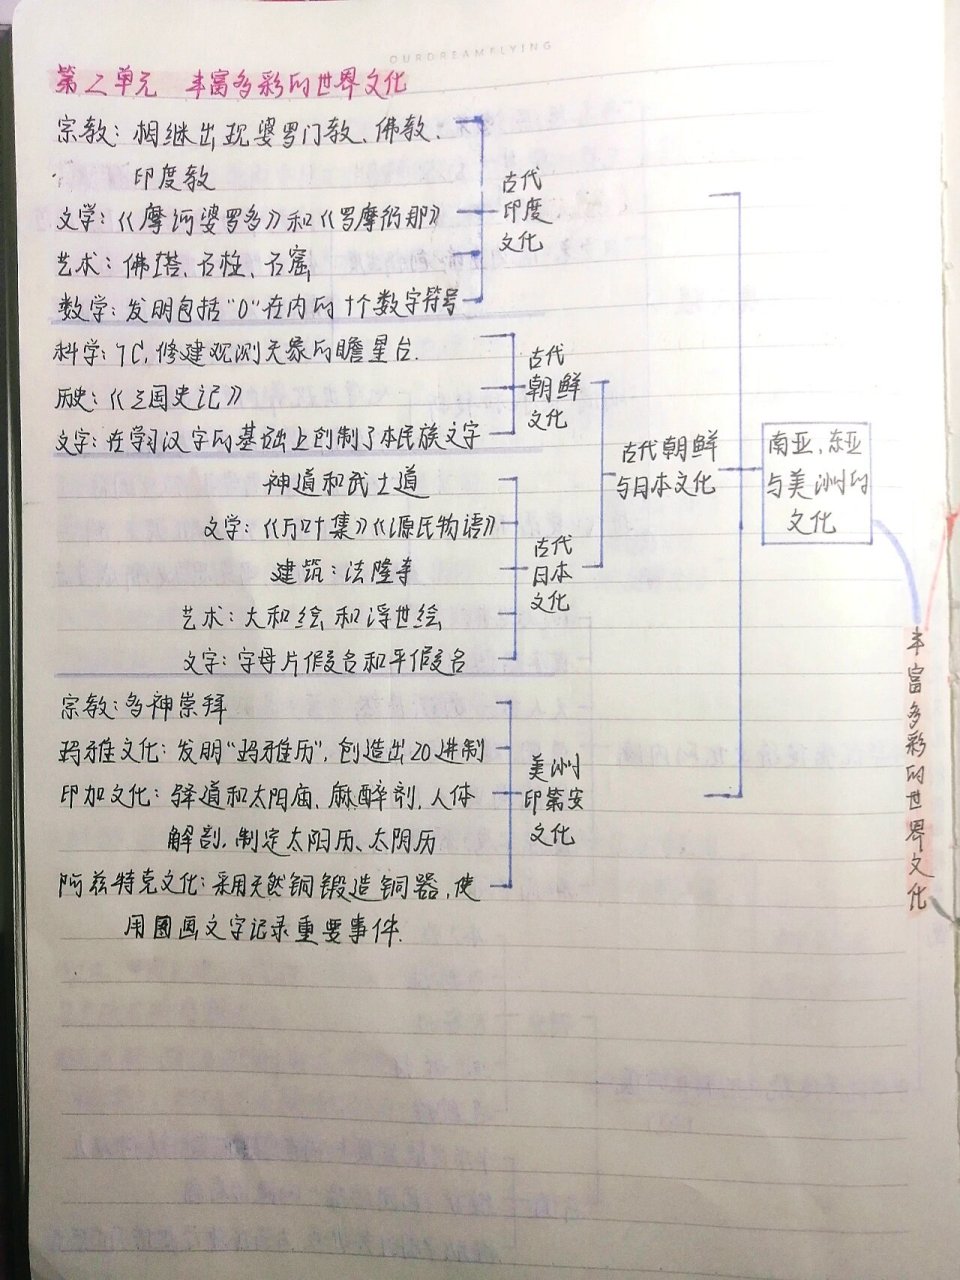 OURDREAMFLYING
第二单元 丰富多彩的世界文化
宗教：相继出现婆罗门教、佛教.
印度教
文学：《摩诃婆罗多》和《罗摩衍那》
艺术：佛塔、石柱、石窟
数学：发明包括“0”在内的十个数字符号
古代
印度
文化
科学：7C，修建观测天象的瞻星台.
历史：《三国史记》
文字：在学习汉字的基础上创制了本民族文字
古代
朝鲜
文化
神道和武士道
文学：《万叶集》《源氏物语》
建筑：法隆寺
艺术：大和绘和浮世绘
文字：字母片假名和平假名
古代
日本
文化
古代朝鲜
与日本文化
宗教：多神崇拜
玛雅文化：发明“玛雅历”，创造出20进制
印加文化：驿道和太阳庙、麻醉剂、人体
解剖，制定太阳历、太阴历
阿兹特克文化：采用天然铜锻造铜器，使
用图画文字记录重要事件.
美洲
印第安
文化
南亚、东亚
与美洲的
文化
丰富多彩的世界文化